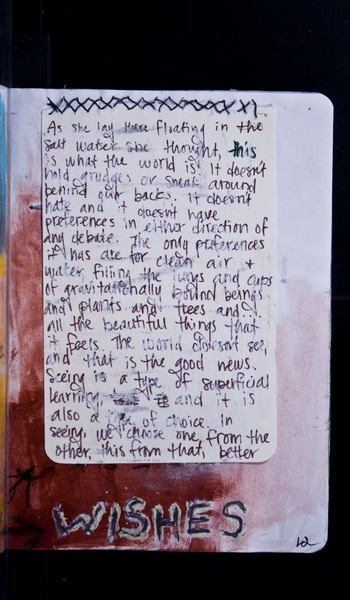 As she lay there floating in the
salt water she thought, this
is what the world is. It doesn't
hold grudges or sneak around
behind our backs. It doesn't
hate and it doesn't have
preferences in either direction of
any debate. The only preferences
it has are for clean air +
water filling the lungs and cups
of gravitationally bound beings
and plants and trees and
all the beautiful things that
it feels. The world doesn't see,
and that is the good news.
Seeing is a type of superficial
learning and it is
also a type of choice. In
seeing, we choose one from the
other, this from that, better
WISHES